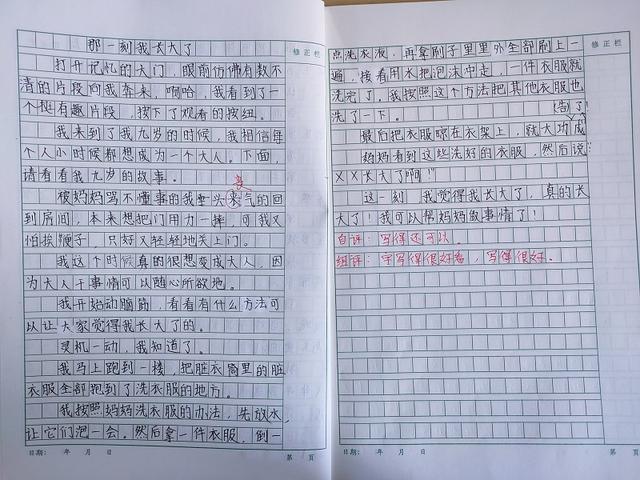 那一刻我长大了
修正栏
打开记忆的大门，眼前仿佛有数不
清的片段向我奔来，啊哈，我看到了一
个挺有趣片段，按下了观看的按钮。
我来到了我九岁的时候，我相信每
个人小时候都想成为一个大人。下面，
请看看我九岁的故事。
丧
被妈妈骂不懂事的我垂头来气的回
到房间，本来想把门用力一摔，可我又
怕挨鞭子，只好又轻轻地关上门。
我这个时候真的很想变成大人，因
为大人干事情可以随心所欲地。
我开始动脑筋，看看有什么方法可
以让大家觉得我长大了的。
灵机一动，我知道了。
我马上跑到一楼，把脏衣筒里的脏
衣服全部抱到了洗衣服的地方。
我按照妈妈洗衣服的办法，先放水，
让它们泡一会。然后拿一件衣服，倒一
日期： 年 月 日
第 页
修正栏
点洗衣液，再拿刷子里里外全部刷上一
遍，接着用水把泡沫冲走，一件衣服就
洗完了，我按照这个方法把其他衣服也
洗了一下。
告了！
最后把衣服晾在衣架上，就大功成
妈妈看到这些洗好的衣服，然后说：
XX长大了啊！”
这一刻，我觉得我长大了，真的长
大了！我可以帮妈妈做事情了！
自评：写得还可以。
组评：字写得很好看，写得很好。
日期： 年 月 日
第 页